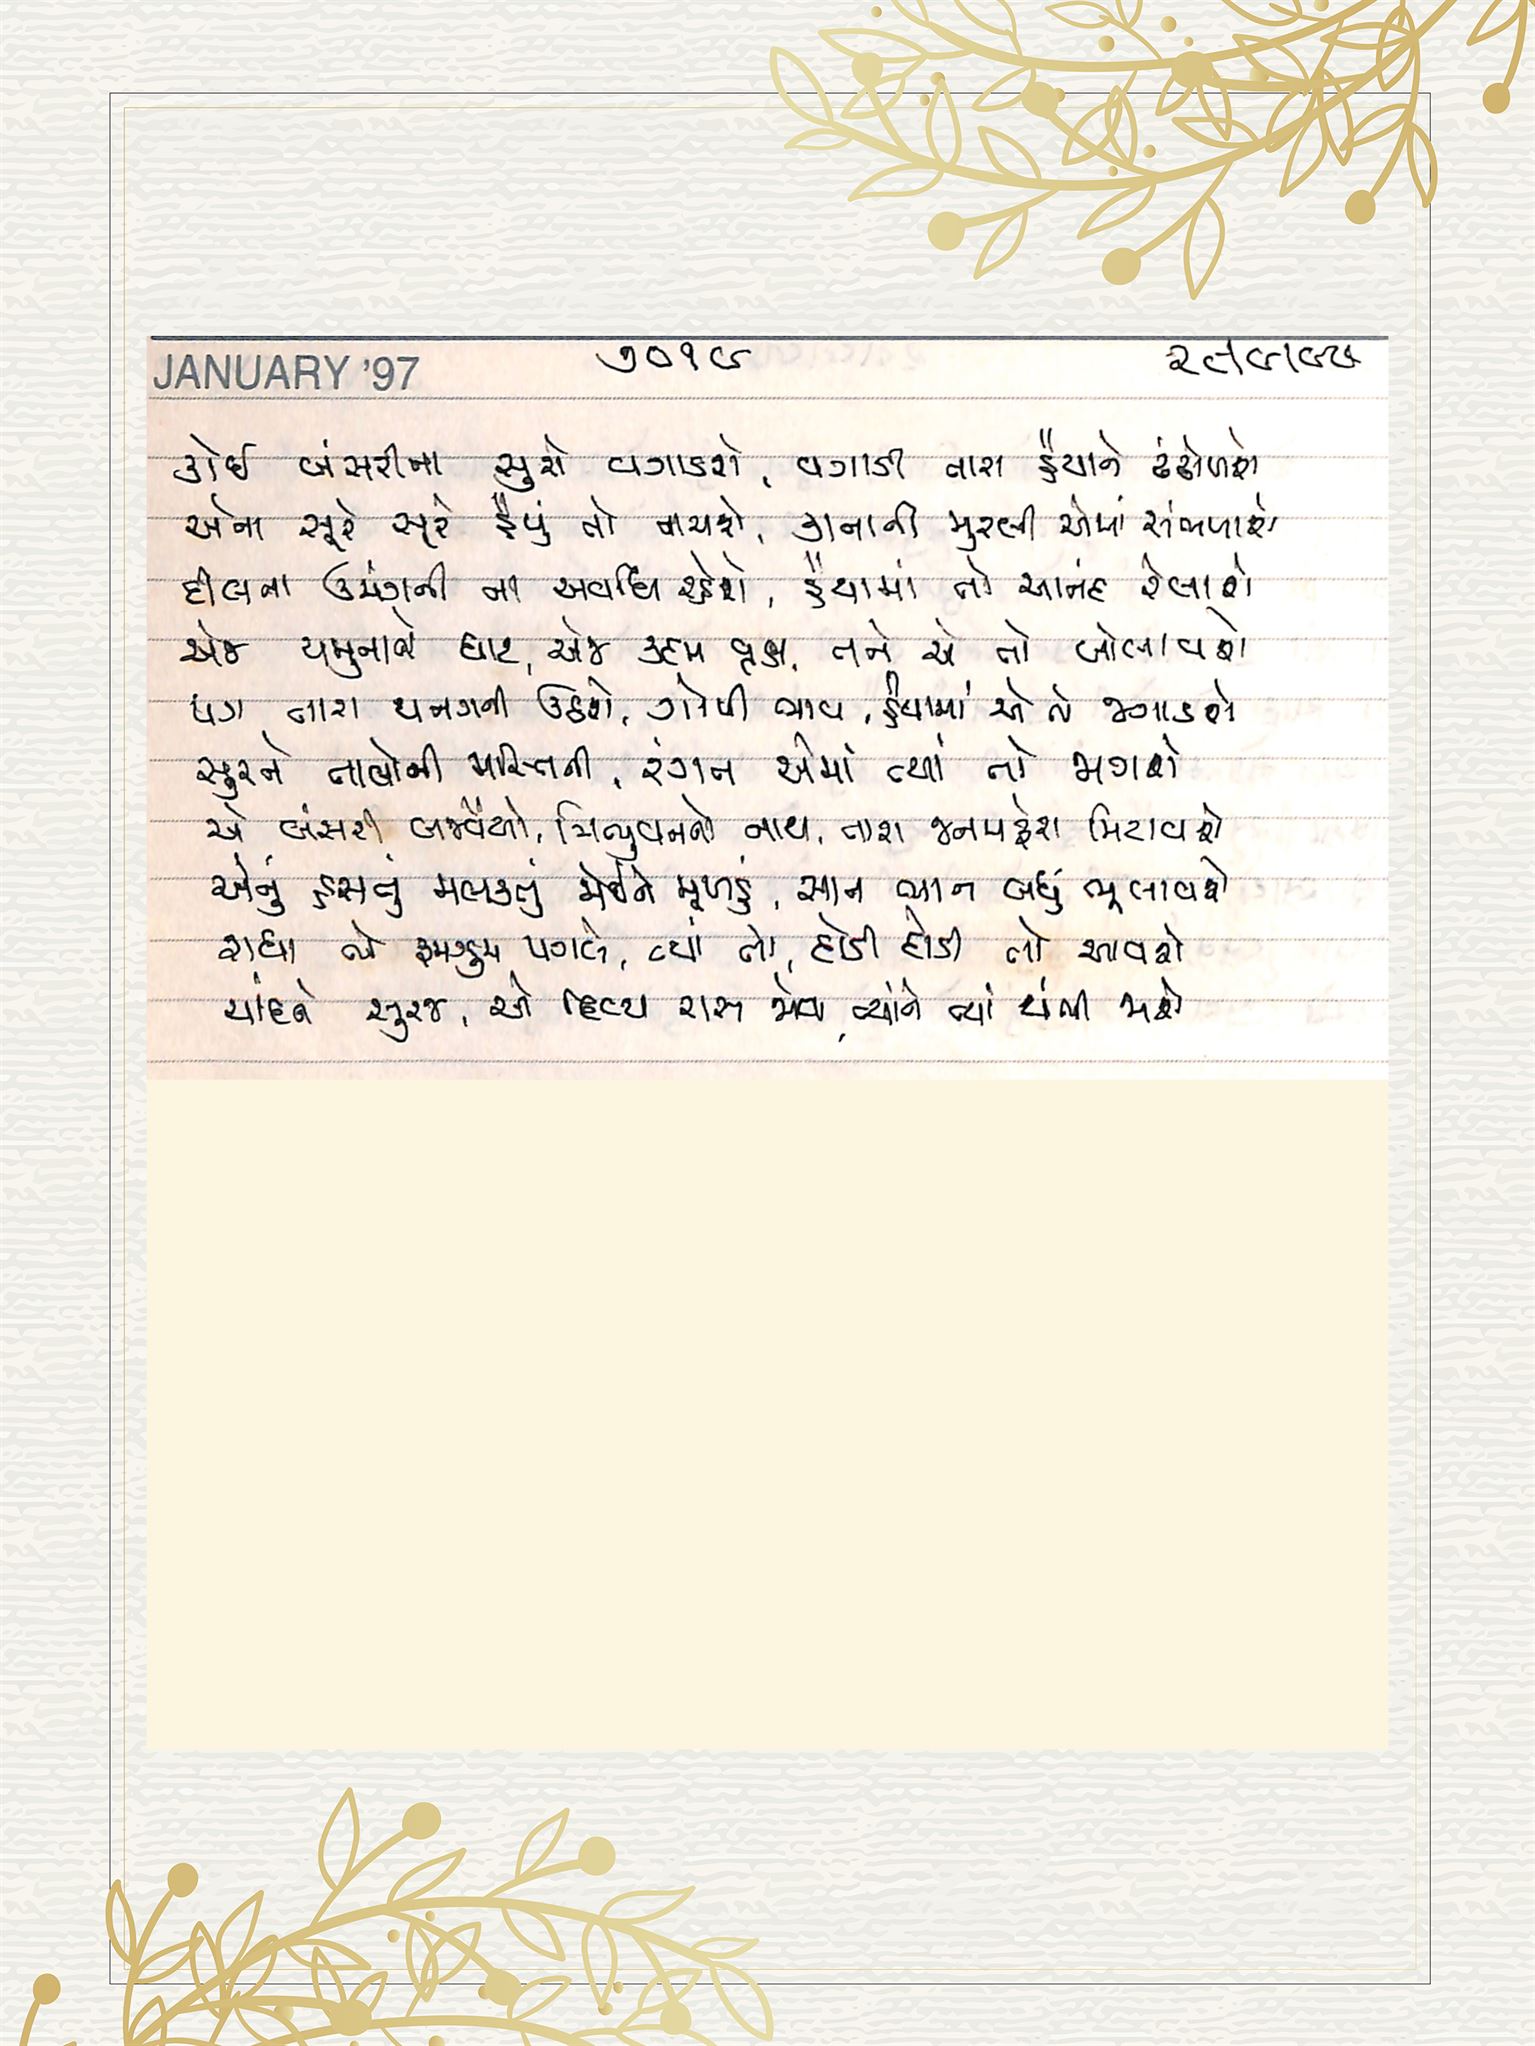 JANUARY '97 ૭૦૧૯
કોઈ બંસરીના સુરો વગાડશે, વગાડી તારા હૈયાને ઢંઢોળશે
એના સૂરે સૂરે હૈયું તો નાચશે, કાનાની મુરલી એમાં સંભળાશે
દીલના ઉમંગની ના અવધિ રહેશે, હૈયામાં તો આનંદ રેલાશે
એજ યમુનાનો ઘાટ, એજ કદમ વૃક્ષ, તને એ તો બોલાવશે
પગ તારા થનગની ઉઠશે, ગોપી ભાવ, હૈયામાં એ તો જગાડશે
સુરને તાલોની મસ્તિની, રંગત એમાં ત્યાં તો જામશે
એ બંસરી બજવૈયો, ત્રિભુવનનો નાથ, તારા જનમફેરા મિટાવશે
એનું હસતું મલકતું જોઈને મૂખડું, સાન ભાન બધું ભૂલાવશે
રાધા તો રૂમઝુમ પગલે, ત્યાં તો, દોડી દોડી તો આવશે
ચાંદને સુરજ, એ દિવ્ય રાસ જોવા, ત્યાંને ત્યાં થંભી જાશે